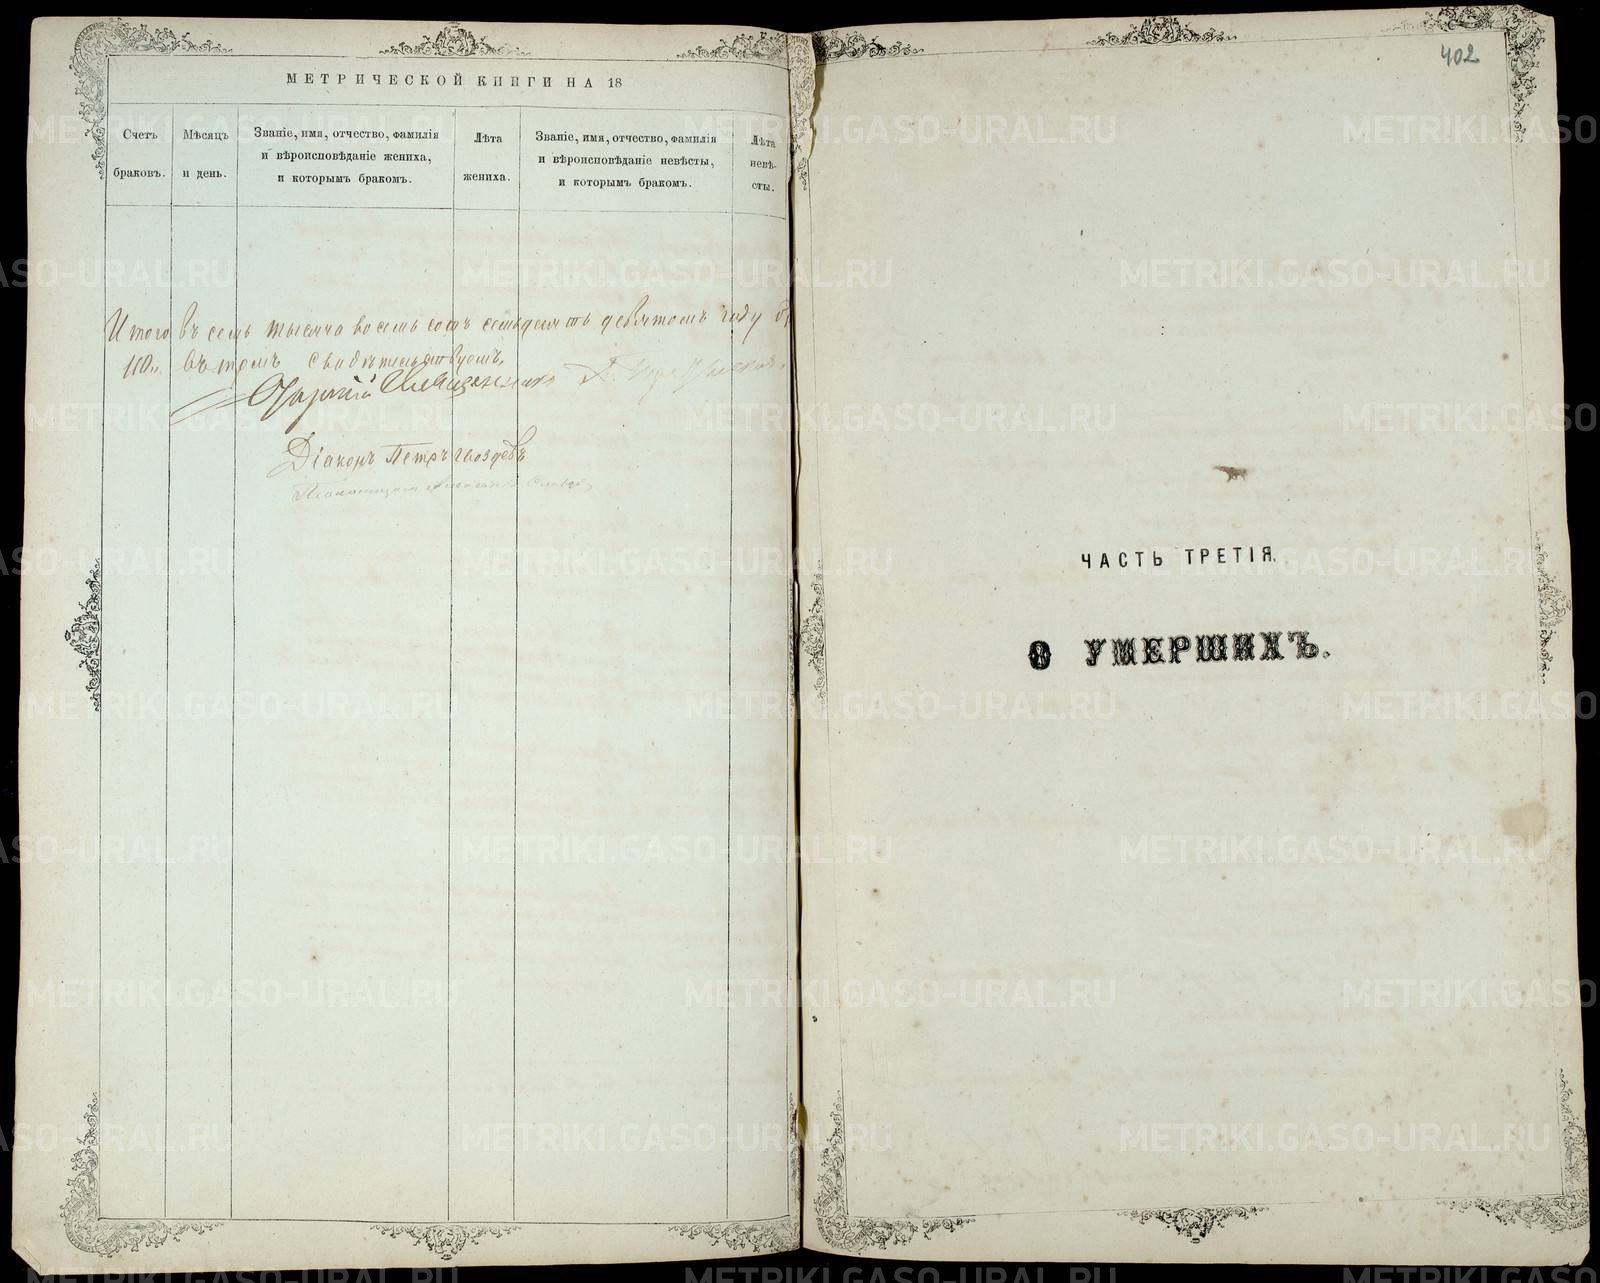 МЕТРИЧЕСКОЙ КНИГИ НА 18
Счетъ браковъ.
Мѣсяцъ и день.
Званіе, имя, отчество, фамилія
и вѣроисповѣданіе жениха,
и которымъ бракомъ.
Лѣта жениха.
Званіе, имя, отчество, фамилія
и вѣроисповѣданіе невѣсты,
и которымъ бракомъ.
Лѣта невѣ-
сты.
Итого въ семъ тысяча восемь сотъ семьдесятъ девятомъ году
въ томъ свидѣтельствуемъ,
Священникъ
Діаконъ Петръ Гвоздевъ
402
ЧАСТЬ ТРЕТІЯ.
О УМЕРШИХЪ.
METRIKI.GASO-URAL.RU